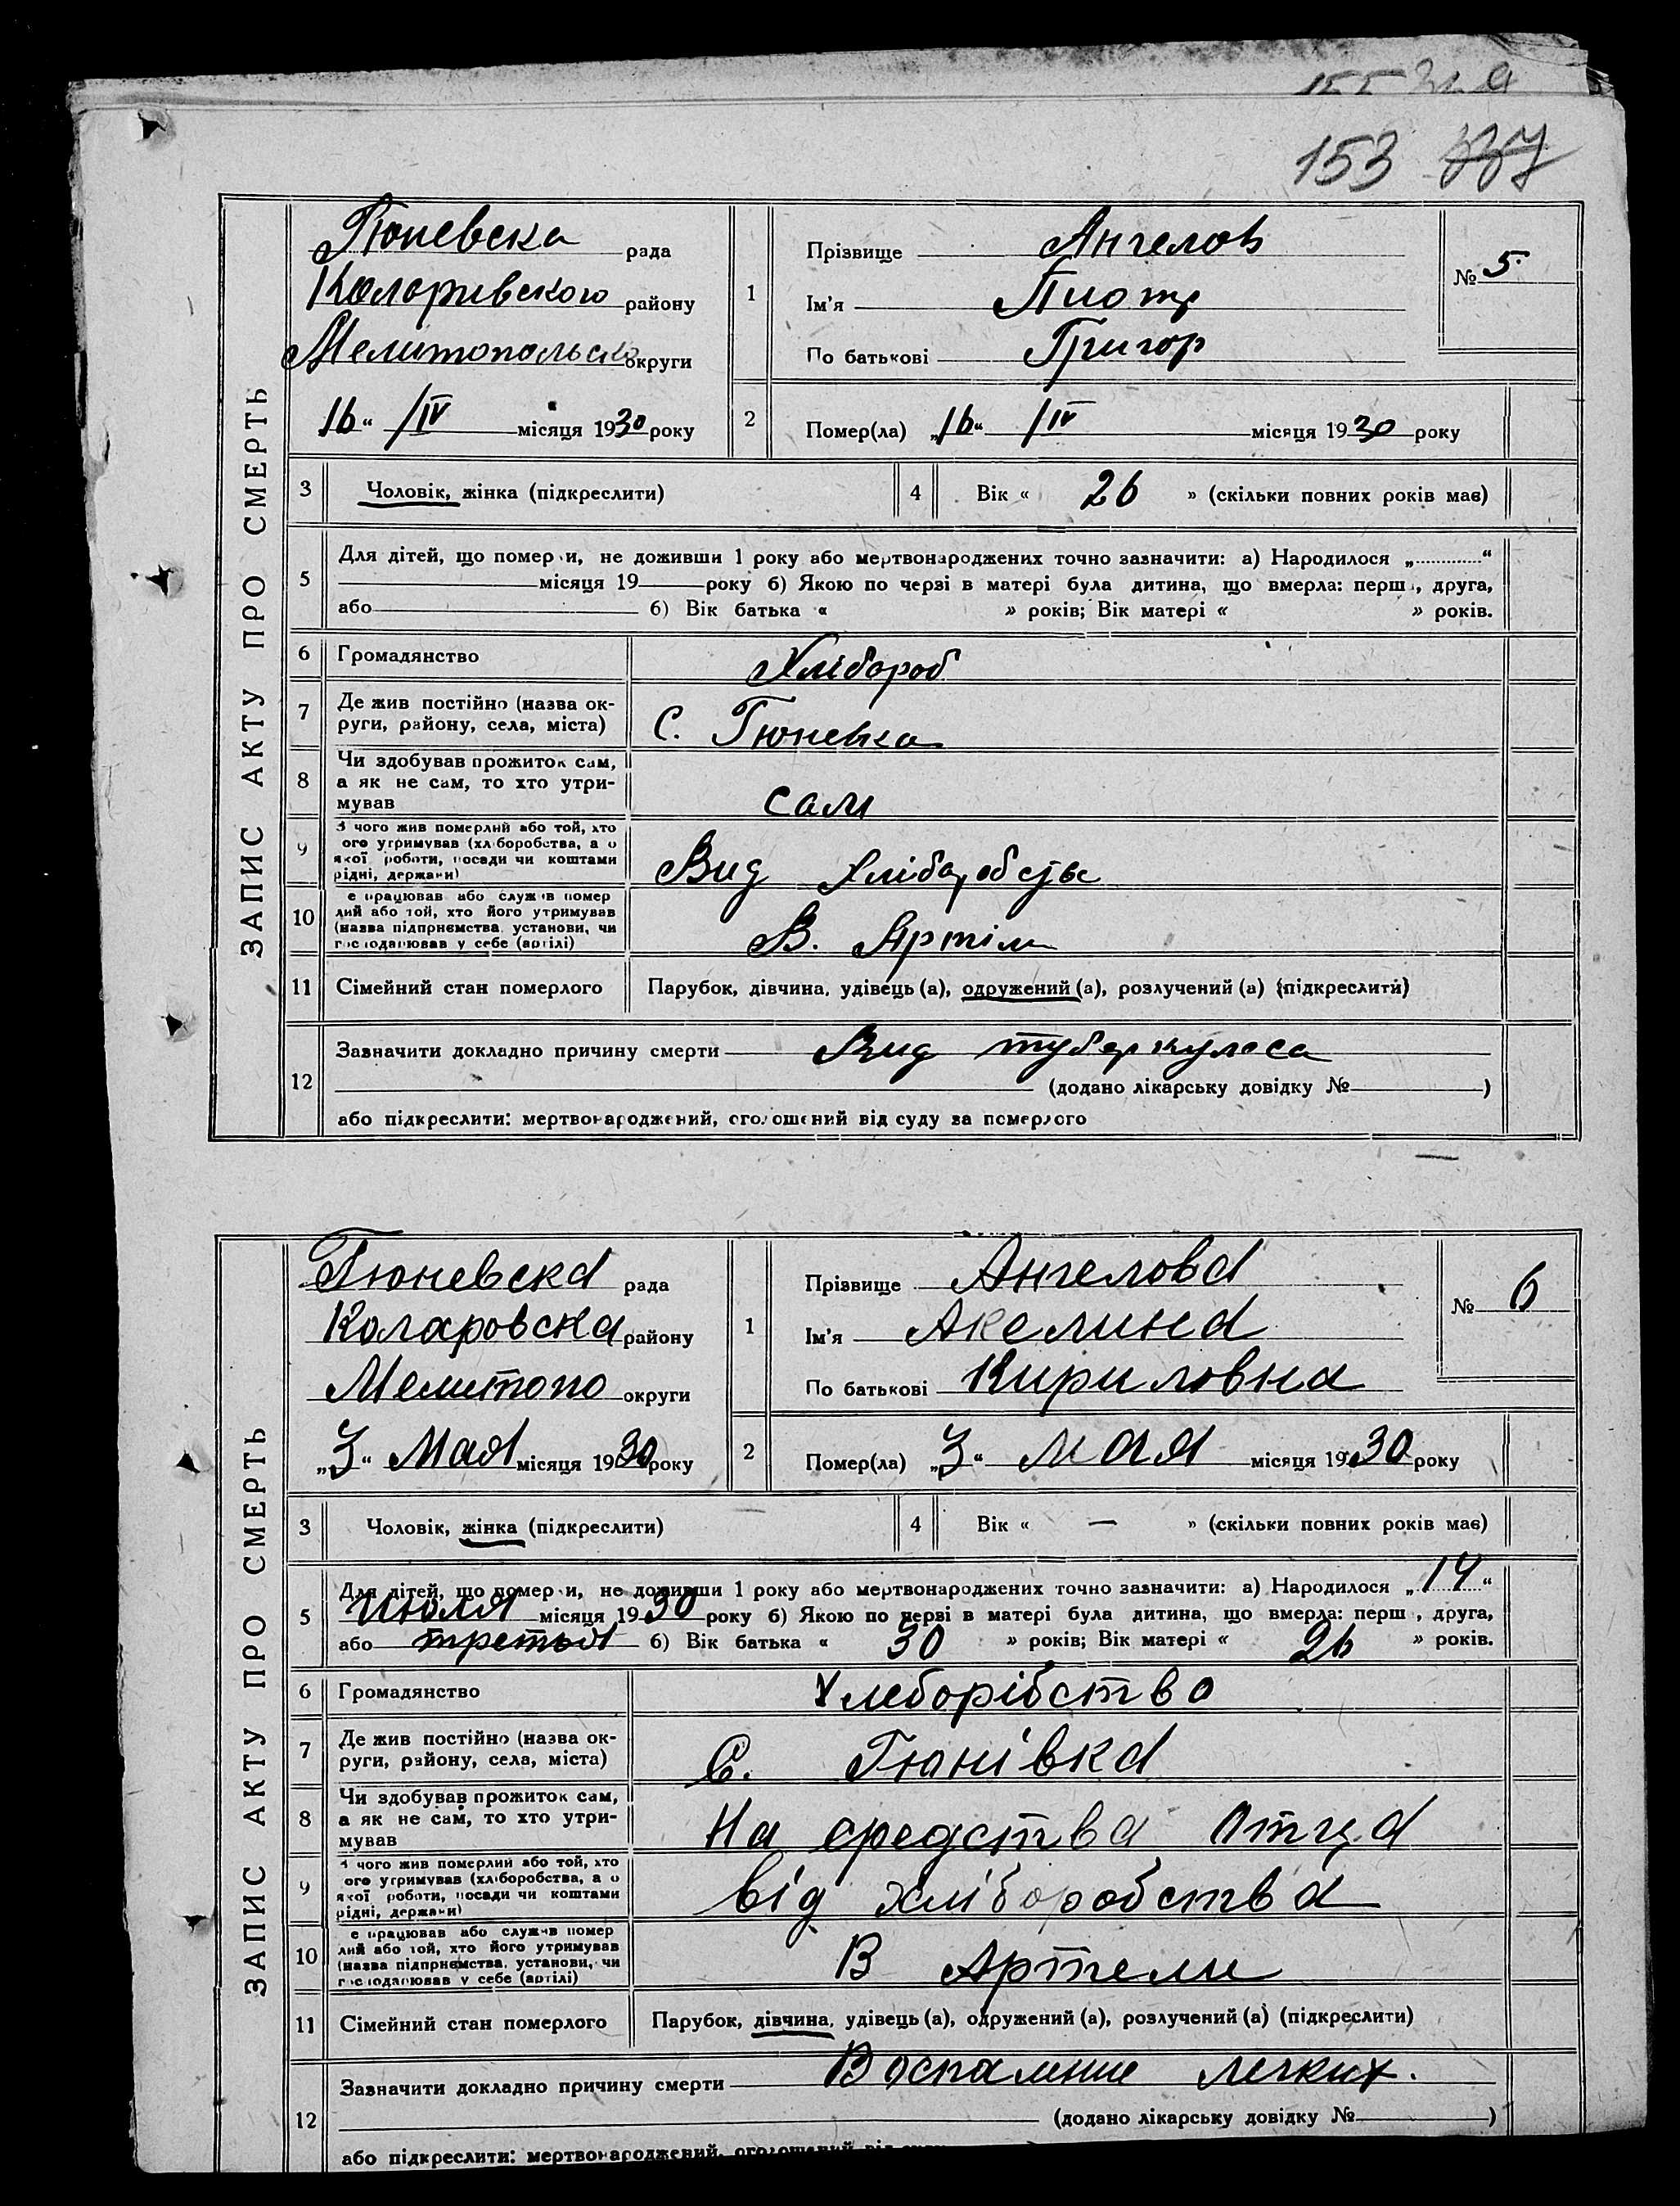 153 337
ЗАПИС АКТУ ПРО СМЕРТЬ
Гюневска рада
Коларивского району
Мелитопольско округи
16 “ /IV місяця 1930 року
1
Прізвище Ангелов
Ім’я Пиотр
По батькові Григор
№ 5
2
Помер(ла) „16“ /IV місяця 1930 року
3 Чоловік, жінка (підкреслити)
4 Вік « 26 » (скільки повних років має)
5 Для дітей, що помер и, не доживши 1 року або мертвонароджених точно зазначити: а) Народилося „ “
місяця 19 року б) Якою по черзі в матері була дитина, що вмерла: перш , друга,
або б) Вік батька « » років; Вік матері « » років.
6 Громадянство Хлібороб
7 Де жив постійно (назва ок-
руги, району, села, міста) С. Гюневка
8 Чи здобував прожиток сам,
а як не сам, то хто утри-
мував сам
9 З чого жив померлий або той, хто
ого утримував (хліборобства, а о
якої роботи, посади чи коштами
рідні, держави) Вид Хліборобства
10 е працював або служив помер
лий або той, хто його утримував
(назва підприємства, установи, чи
господарював у себе (артілі) В. Артіли
11 Сімейний стан померлого Парубок, дівчина, удівець (а), одружений (а), розлучений (а) (підкреслити)
12 Зазначити докладно причину смерти Вид туберкулоса
(додано лікарську довідку № )
або підкреслити: мертвонароджений, оголошений від суду за померлого
ЗАПИС АКТУ ПРО СМЕРТЬ
Гюневска рада
Коларовска району
Мелитопо округи
„3“ Мая місяця 1930 року
1
Прізвище Ангелова
Ім’я Акелина
По батькові Кириловна
№ 6
2
Помер(ла) „3“ мая місяця 1930 року
3 Чоловік, жінка (підкреслити)
4 Вік « — » (скільки повних років має)
5 Для дітей, що помер и, не доживши 1 року або мертвонароджених точно зазначити: а) Народилося „14“
Июля місяця 1930 року б) Якою по черзі в матері була дитина, що вмерла: перш , друга,
або третья б) Вік батька « 30 » років; Вік матері « 26 » років.
6 Громадянство Хлеборібство
7 Де жив постійно (назва ок-
руги, району, села, міста) С. Гюнівка
8 Чи здобував прожиток сам,
а як не сам, то хто утри-
мував На средства Отца
9 З чого жив померлий або той, хто
ого утримував (хліборобства, а о
якої роботи, посади чи коштами
рідні, держави) від хліборобства
10 е працював або служив помер
лий або той, хто його утримував
(назва підприємства, установи, чи
господарював у себе (артілі) В Артели
11 Сімейний стан померлого Парубок, дівчина, удівець (а), одружений (а), розлучений (а) (підкреслити)
12 Зазначити докладно причину смерти Воспаление легких.
(додано лікарську довідку № )
або підкреслити: мертвонароджений, оголошений від